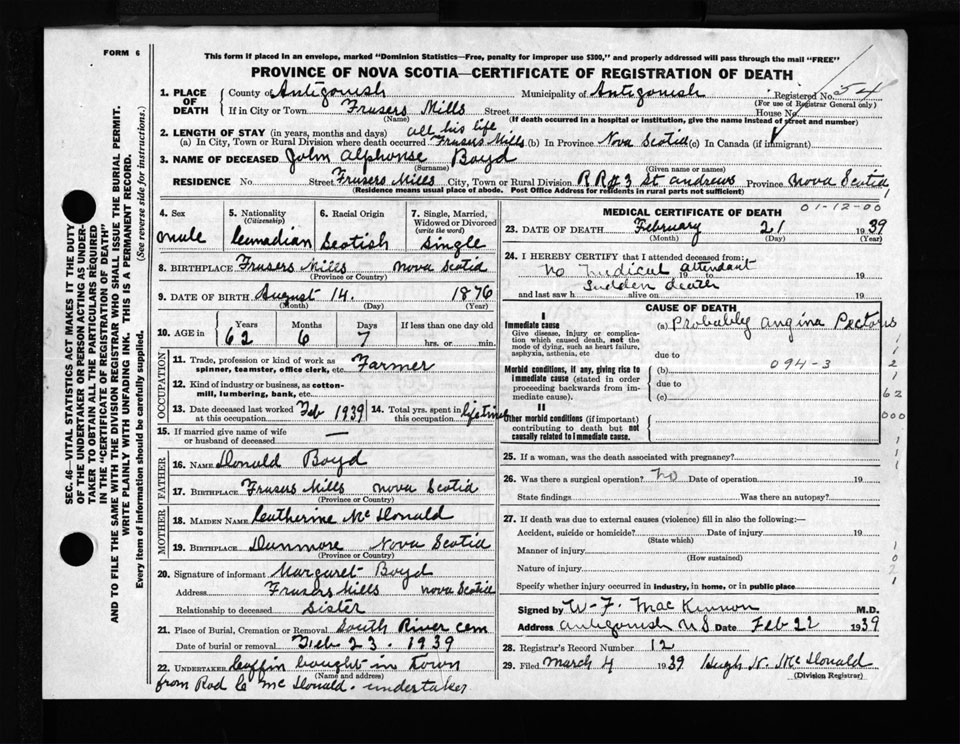 FORM 6
This form if placed in an envelope, marked "Dominion Statistics—Free, penalty for improper use $300," and properly addressed will pass through the mail "FREE"
PROVINCE OF NOVA SCOTIA—CERTIFICATE OF REGISTRATION OF DEATH
SEC. 46—VITAL STATISTICS ACT MAKES IT THE DUTY
OF THE UNDERTAKER OR PERSON ACTING AS UNDER-
TAKER TO OBTAIN ALL THE PARTICULARS REQUIRED
IN THE "CERTIFICATE OF REGISTRATION OF DEATH"
AND TO FILE THE SAME WITH THE DIVISION REGISTRAR WHO SHALL ISSUE THE BURIAL PERMIT.
WRITE PLAINLY WITH UNFADING INK. THIS IS A PERMANENT RECORD.
Every item of information should be carefully supplied. (See reverse side for instructions.)
1. PLACE OF DEATH County of Antigonish Municipality of Antigonish Registered No. 54
(For use of Registrar General only)
If in City or Town Frasers Mills Street House No.
(Name) (If death occurred in a hospital or institution, give the name instead of street and number)
2. LENGTH OF STAY (in years, months and days) all his life
(a) In City, Town or Rural Division where death occurred Frasers Mills (b) In Province Nova Scotia (c) In Canada (if immigrant)
3. NAME OF DECEASED John Alphonse Boyd
(Surname) (Given name or names)
RESIDENCE No. Street Frasers Mills City, Town or Rural Division R R # 3 St Andrews Province Nova Scotia
(Residence means usual place of abode. Post Office Address for residents in rural parts not sufficient)
4. Sex 5. Nationality (Citizenship) 6. Racial Origin 7. Single, Married, Widowed or Divorced (write the word)
male Canadian Scotish Single
8. BIRTHPLACE Frasers Mills Nova Scotia
(Province or Country)
9. DATE OF BIRTH August 14. 1876
(Month) (Day) (Year)
10. AGE in Years Months Days If less than one day old
62 6 7 hrs. or min.
OCCUPATION
11. Trade, profession or kind of work as spinner, teamster, office clerk, etc. Farmer
12. Kind of industry or business, as cotton-mill, lumbering, bank, etc.
13. Date deceased last worked at this occupation Feb 1939 14. Total yrs. spent in this occupation lifetime
15. If married give name of wife or husband of deceased —
FATHER
16. NAME Donald Boyd
17. BIRTHPLACE Frasers Mills Nova Scotia
(Province or Country)
MOTHER
18. MAIDEN NAME Catherine McDonald
19. BIRTHPLACE Dunmore Nova Scotia
(Province or Country)
20. Signature of informant Margaret Boyd
Address Frasers Mills Nova Scotia
Relationship to deceased Sister
21. Place of Burial, Cremation or Removal South River cem
Date of burial or removal Feb 23. 1939
22. UNDERTAKER Coffin bought in town
(Name and address)
from Rod C McDonald - undertaker
01-12-00
MEDICAL CERTIFICATE OF DEATH
23. DATE OF DEATH February 21 1939
(Month) (Day) (Year)
24. I HEREBY CERTIFY that I attended deceased from:
No medical attendant 19 to 19
Sudden death
and last saw h alive on 19
CAUSE OF DEATH
I
Immediate cause (a) Probably angina Pectoris
Give disease, injury or complica-
tion which caused death, not the
mode of dying, such as heart failure,
asphyxia, asthenia, etc
due to
Morbid conditions, if any, giving rise to
immediate cause (stated in order
proceeding backwards from im-
mediate cause).
(b) 094-3
due to
(c)
II
Other morbid conditions (if important)
contributing to death but not
causally related to immediate cause.
62
000
25. If a woman, was the death associated with pregnancy?
26. Was there a surgical operation? No Date of operation 19
State findings Was there an autopsy?
27. If death was due to external causes (violence) fill in also the following:—
Accident, suicide or homicide? Date of injury 19
(State which)
Manner of injury
(How sustained)
Nature of injury
Specify whether injury occurred in industry, in home, or in public place
Signed by W. F. MacKinnon M.D.
Address Antigonish N S Date Feb 22 1939
28. Registrar's Record Number 12
29. Filed March 4 1939 Hugh N. McDonald
(Division Registrar)